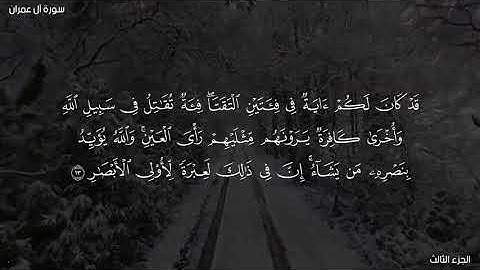 سورة آل عمران
قَدْ كَانَ لَكُمْ ءَايَةٌ فِى فِئَتَيْنِ ٱلْتَقَتَا ۖ فِئَةٌ تُقَٰتِلُ فِى سَبِيلِ ٱللَّهِ
وَأُخْرَىٰ كَافِرَةٌ يَرَوْنَهُم مِّثْلَيْهِمْ رَأْىَ ٱلْعَيْنِ ۚ وَٱللَّهُ يُؤَيِّدُ
بِنَصْرِهِۦ مَن يَشَآءُ ۗ إِنَّ فِى ذَٰلِكَ لَعِبْرَةً لِّأُو۟لِى ٱلْأَبْصَٰرِ ١٣
الجزء الثالث